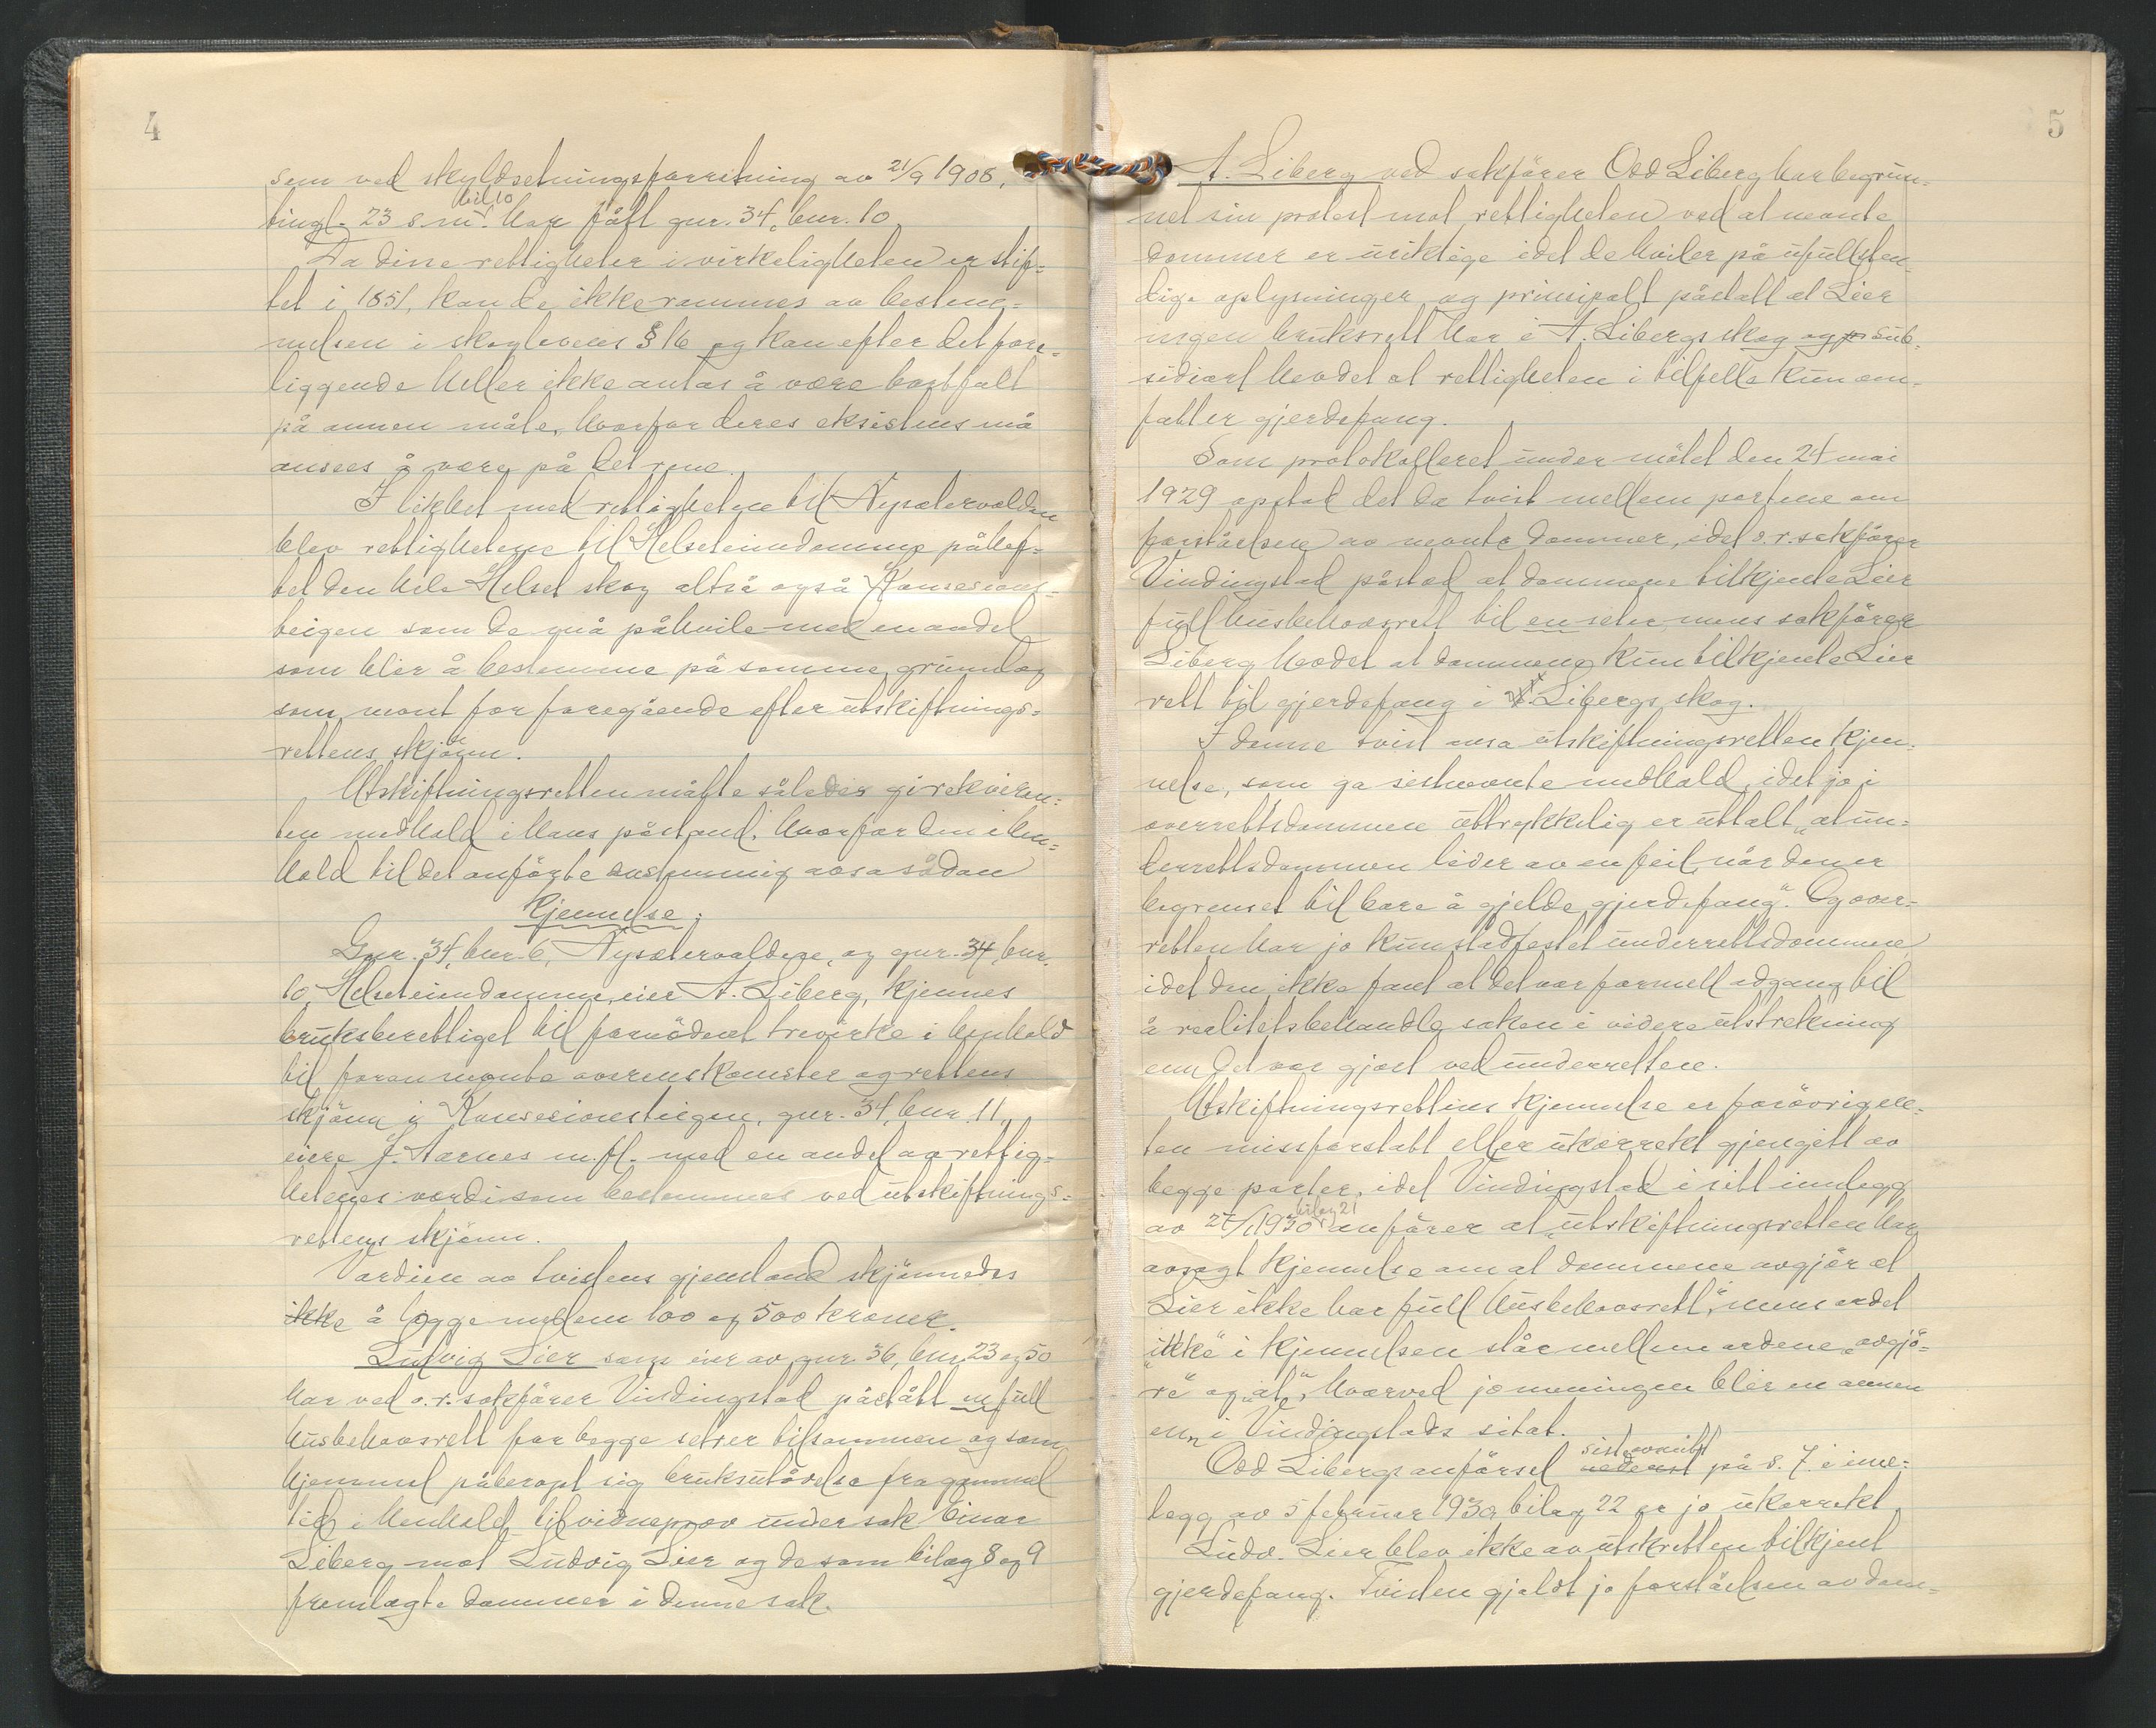 4
som ved skyldsetningsforretning av 21/9 1908,
bil 10
tingl. 23 s.m. har fått gnr. 34, bnr. 10
Da disse rettigheter i virkeligheten er stif-
tet i 1851, kan de ikke rammes av bestem-
melsen i skoglovens § 16 og kan efter det fore-
liggende heller ikke antas å være bortfalt
på annen måte, hvorfor deres eksistens må
ansees å være på det rene.
I likhet med rettighetene til Nysætervolden
blev rettighetene til Helseteiendomme påhef-
tet den hele Helset skog altså også Konsesions-
teigen som de må påhvile med en andel
som blir å bestemme på samme grunnlag
som nevnt for foregående efter utskiftnings-
rettens skjønn.
Utskiftningsretten måtte således gi rekviren-
ten medhold i hans påstand, hvorfor den i hen-
hold til det anførte avsa sådan
Kjennelse:
Gnr. 34, bnr. 6, Nysætervoldene, og gnr. 34, bnr.
10, Helseteiendomme, eier A. Liberg, kjennes
bruksberettiget til fornødent trevirke i henhold
til foran nevnte overenskomster og rettens
skjønn i Konsesionsteigen, gnr. 34, bnr. 11,
eiere J. Aarnes m.fl. med en andel av rettig-
hetenes verdi som bestemmes ved utskiftnings-
rettens skjønn.
Verdien av tvistens gjenstand skjønnedes
ikke å ligge mellem 100 og 500 kroner.
Ludvig Lier som eier av gnr. 36, bnr. 23 og 50
har ved o.r.sakfører Vindingstad påstått en full
husbehovsrett for begge setrer tilsammen og som
hjemmel påberopt sig bruksutøvelse fra gammel
tid i henhold til vidneprov under sak Einar
Liberg mot Ludvig Lier og de som bilag 8 og 9
fremlagte dommer i denne sak.
5
A. Liberg ved sakfører Odd Liberg har begrun-
net sin protest mot rettigheten ved at nevnte
dommer er uriktige idet de hviler på ufullsten-
dige oplysninger og principalt påstått at Lier
ingen bruksrett har i A. Libergs skog og sub-
sidiært hevdet at rettigheten i tilfelle kun om-
fatter gjerdefang.
Som protokolleret under møtet den 24 mai
1929 opstod det da tvist mellem partene om
forståelsen av nevnte dommer, idet o.r.sakfører
Vindingstad påstod at dommene tilkjente Lier
full husbehovsrett til en seter mens sakfører
Liberg hevdet at dommene kun tilkjente Lier
rett til gjerdefang i A. Libergs skog.
I denne tvist avsa utskiftningsretten kjen-
nelse, som ga sistnevnte medhold, idet jo i
overrettsdommen uttrykkelig er uttalt "at un-
derrettsdommen lider av en feil, når den er
begrenset til bare å gjelde gjerdefang". Og over-
retten har jo kun stadfestet underrettsdommen
idet den ikke fant at det var formell adgang til
å realitetsbehandle saken i videre utstrekning
enn det var gjort ved underretten.
Utskiftningsrettens kjennelse er forøvrig en-
ten missforstått eller ukorrekt gjengitt av
begge parter, idet Vindingstad i sitt innlegg
bilag 21
av 27/1 1930 anfører at "utskiftningsretten har
avsagt kjennelse om at dommene avgjør at
Lier ikke har full husbehovsrett", mens ordet
"ikke" i kjennelsen står mellem ordene "avgjø-
re" og "at", hvorved jo meningen blir en annen
enn i Vindingstads sitat.
sistnevnt
Odd Libergs anførsel nederst på s. 7 i inn-
legg av 5 februar 1930, bilag 22 er jo ukorrekt.
Ludv. Lier blev ikke av utskretten tilkjent
gjerdefang. Tvisten gjaldt jo forståelsen av dom-